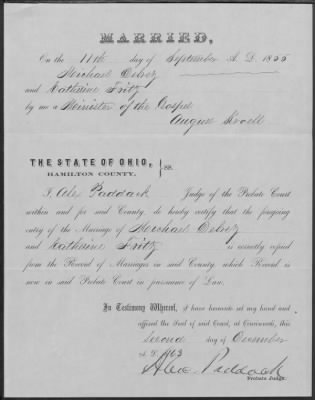 MARRIED,
On the 11th day of September A. D. 1855
Michael Delvez
and Katharine Fritz
by me a Minister of the Gospel
August Kroell
THE STATE OF OHIO,
HAMILTON COUNTY, } SS.
I, Alex Paddack Judge of the Probate Court
within and for said County, do hereby certify that the foregoing
entry of the Marriage of Michael Delvez
and Katharine Fritz is correctly copied
from the Record of Marriages in said County, which Record is
now in said Probate Court in pursuance of Law.
In Testimony Whereof, I have hereunto set my hand and
affixed the Seal of said Court, at Cincinnati, this
second day of December
A. D. 1863
Alex Paddack
Probate Judge.